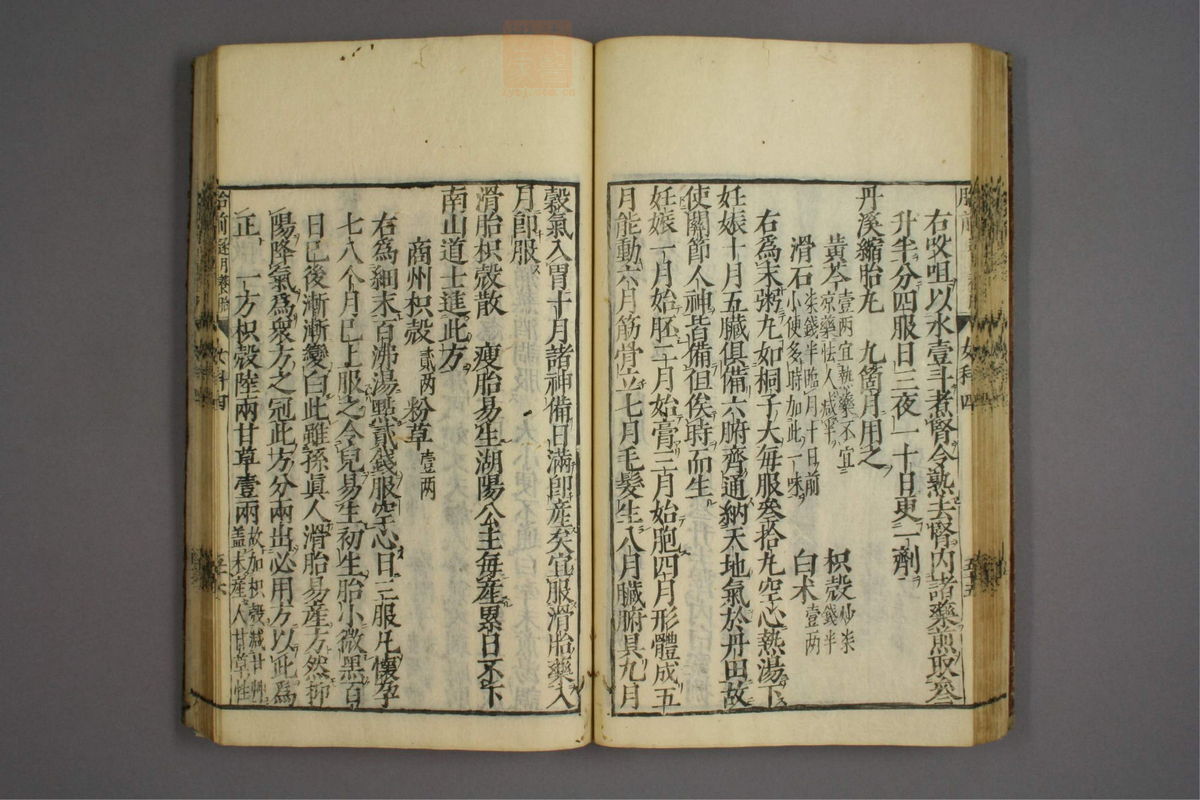 右㕮咀以水壹斗煮腎令熟去腎內諸藥煎取叁
升半分四服日三夜一十日更一劑
丹溪縮胎丸　九箇月用之
黄芩壹兩宜熱藥不宜凉藥怯人減半　枳殼炒柒錢半
滑石柒錢半臨月十日前小便多時加此一味　白术壹兩
右為末粥丸如桐子大每服叁拾丸空心熱湯下
妊娠十月五臟俱備六腑齊通納天地氣於丹田故
使關節人神皆備但俟時而生
妊娠一月始胚二月始膏三月始胞四月形體成五
月能動六月筋骨立七月毛髮生八月臟腑具九月
穀氣入胃十月諸神備日滿卽產矣宜服滑胎藥入
月卽服
滑胎枳殼散　瘦胎易生湖陽公主每產累日不下
南山道士進此方
商州枳殼貳兩　粉草壹兩
右為細末百沸湯點貳錢服空心日三服凡懷孕
七八个月已上服之令兒易生初生胎小微黑百
日已後漸漸變白此雖孫真人滑胎易產方然抑
陽降氣為衆方之冠此方分兩出必用方以此為
正　一方枳殼陸兩甘草壹兩故加枳殼減甘艸蓋未產人甘草性
女科四